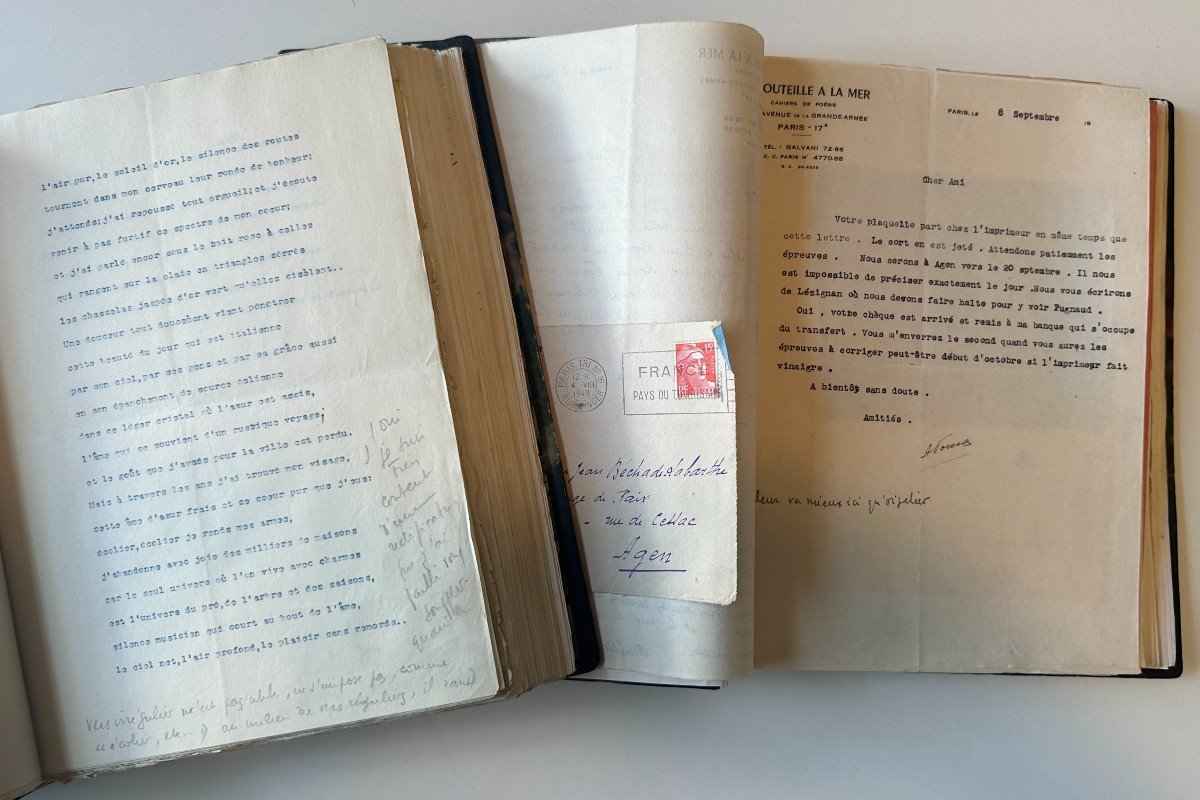 l'air pur,le soleil d'or,le silence des routes
tournent dans mon cerveau leur ronde de bonheur;
j'attends;j'ai repoussé tout orgueil;et j'écoute
venir à pas furtif ce spectre de mon coeur;
et j'ai parlé encor sous le toit rose à celles
qui rangent sur la claie en triangles serrés
les chasselas jaspés d'or vert qu'elles cisèlent..
Une douceur tout doucement vient pénétrer
cette beauté du jour qui est italienne
par son ciel,par ses gens et par sa grâce aussi
en son épanchement de source éolienne
dans ce léger cristal où l'azur est assis,
l'âme qui se souvient d'un rustique voyage;
et le goût que j'avais pour la ville est perdu.
Mais à travers les ans j'ai trouvé mon visage,
cette âme d'azur frais et ce coeur pur que j'eus:
écolier,écolier je rends mes armes,
j'abandonne avec joie des milliers de maisons
car le seul univers où l'on vive avec charmes
est l'univers du pré,de l'arbre et des saisons,
silence musicien qui court au bout de l'âme,
le ciel net,l'air profond,le plaisir sans remords..
oui
très
content
d'une
Vers irrégulier n'est pas utile, ne s'impose pas, comme
"écolier, etc...") au milieu de vers réguliers, il vaud
E A LA MER
PARIS
12
VIII
1949
FRANCE
PAYS DU TOURISME
15F
Jean Béchade-Labarthe
ge de Paix
- rue de Cessac
Agen
OUTEILLE A LA MER
CAHIERS DE POÉSIE
AVENUE DE LA GRANDE-ARMÉE
PARIS - 17e
TÉL. : GALVANI 72-86
C. C. PARIS N° 4770-88
PARIS, LE 8 Septembre 19
Cher Ami
Votre plaquelle part chez l'imprimeur en même temps que
cette lettre . Le sort en est jeté . Attendons patiemment les
épreuves . Nous serons à Agen vers le 20 sptembre . Il nous
est impossible de préciser exactement le jour .Nous vous écrirons
de Lézignan où nous devons faire halte pour y voir Pugnaud .
Oui , votre chèque est arrivé et remis à ma banque qui s'occupe
du transfert . Vous m'enverrez le second quand vous aurez les
épreuves à corriger peut-être début d'octobre si l'imprimeur fait
vinaigre .
A bientôt sans doute .
Amitiés .
leur va mieux ici qu'oiselier